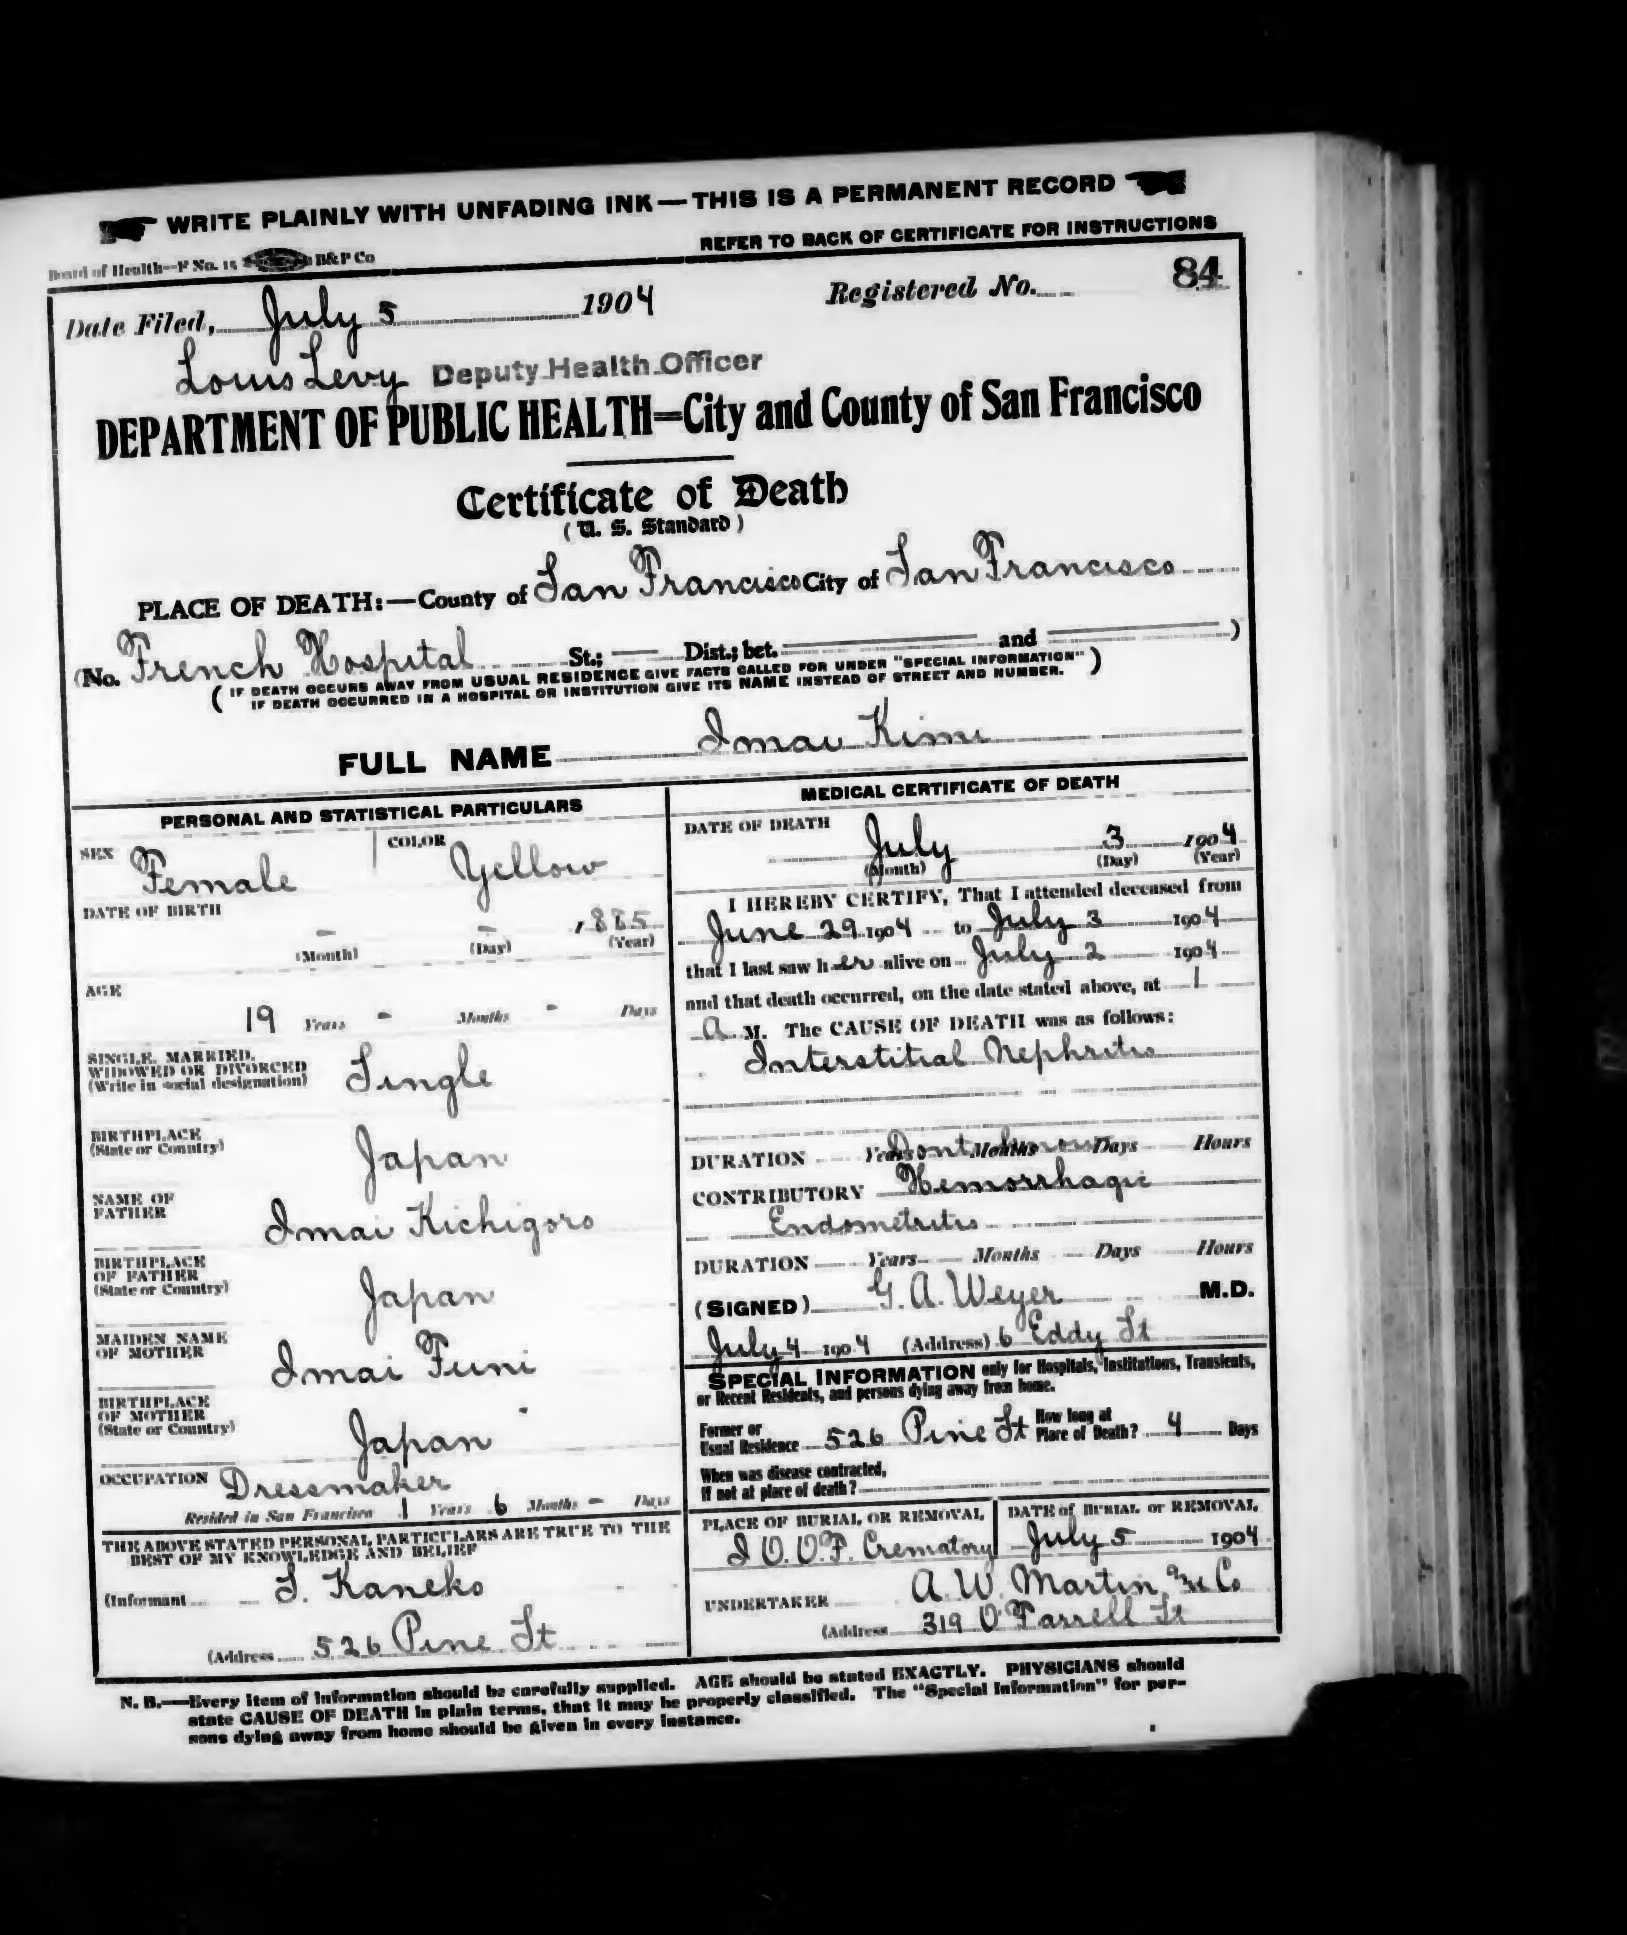 WRITE PLAINLY WITH UNFADING INK—THIS IS A PERMANENT RECORD
Board of Health—F No. 15 B&P Co
REFER TO BACK OF CERTIFICATE FOR INSTRUCTIONS
Date Filed, July 5 1904 Registered No. 84
Louis Levy Deputy Health Officer
DEPARTMENT OF PUBLIC HEALTH=City and County of San Francisco
Certificate of Death
(U. S. Standard)
PLACE OF DEATH:—County of San Francisco City of San Francisco
(No. French Hospital St.; Dist.; bet. and )
( IF DEATH OCCURS AWAY FROM USUAL RESIDENCE GIVE FACTS CALLED FOR UNDER "SPECIAL INFORMATION" )
IF DEATH OCCURRED IN A HOSPITAL OR INSTITUTION GIVE ITS NAME INSTEAD OF STREET AND NUMBER.
FULL NAME Imai Kimi
PERSONAL AND STATISTICAL PARTICULARS
SEX Female COLOR Yellow
DATE OF BIRTH – – 1885
(Month) (Day) (Year)
AGE
19 Years – Months – Days
SINGLE, MARRIED,
WIDOWED OR DIVORCED
(Write in social designation) Single
BIRTHPLACE
(State or Country) Japan
NAME OF
FATHER Imai Kichigoro
BIRTHPLACE
OF FATHER
(State or Country) Japan
MAIDEN NAME
OF MOTHER Imai Funi
BIRTHPLACE
OF MOTHER
(State or Country) Japan
OCCUPATION Dressmaker
Resided in San Francisco 1 Years 6 Months – Days
THE ABOVE STATED PERSONAL PARTICULARS ARE TRUE TO THE
BEST OF MY KNOWLEDGE AND BELIEF
(Informant S. Kaneko
(Address 526 Pine St
MEDICAL CERTIFICATE OF DEATH
DATE OF DEATH
July 3 1904
(Month) (Day) (Year)
I HEREBY CERTIFY, That I attended deceased from
June 29 1904 to July 3 1904
that I last saw her alive on July 2 1904
and that death occurred, on the date stated above, at 1
a M. The CAUSE OF DEATH was as follows:
Interstitial Nephritis
DURATION Years Months Days Hours
Dont know
CONTRIBUTORY Hemorrhagic
Endometritis
DURATION Years Months Days Hours
(SIGNED) G. A. Weyer M.D.
July 4 1904 (Address) 6 Eddy St
SPECIAL INFORMATION only for Hospitals, Institutions, Transients,
or Recent Residents, and persons dying away from home.
Former or
Usual Residence 526 Pine St How long at
Place of Death? 4 Days
When was disease contracted,
If not at place of death?
PLACE OF BURIAL OR REMOVAL
I O.O.F. Crematory
DATE of BURIAL or REMOVAL
July 5 1904
UNDERTAKER A. W. Martin & Co
(Address 319 O'Farrell St
N. B.—Every item of information should be carefully supplied. AGE should be stated EXACTLY. PHYSICIANS should
state CAUSE OF DEATH in plain terms, that it may be properly classified. The "Special Information" for per-
sons dying away from home should be given in every instance.